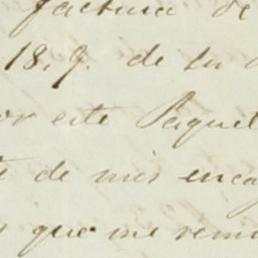 factura de
18.9. de su
or este Paquet
de mis encar
que me remi